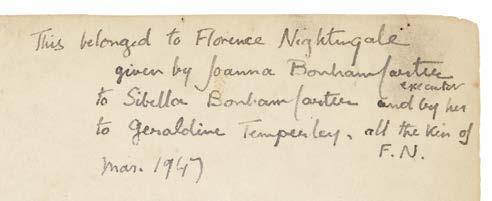 This belonged to Florence Nightingale
given by Joanna Bonham Carter
executor
to Sibella Bonham Carter and by her
to Geraldine Temperley. all the kin of
F.N.
Mar. 1947